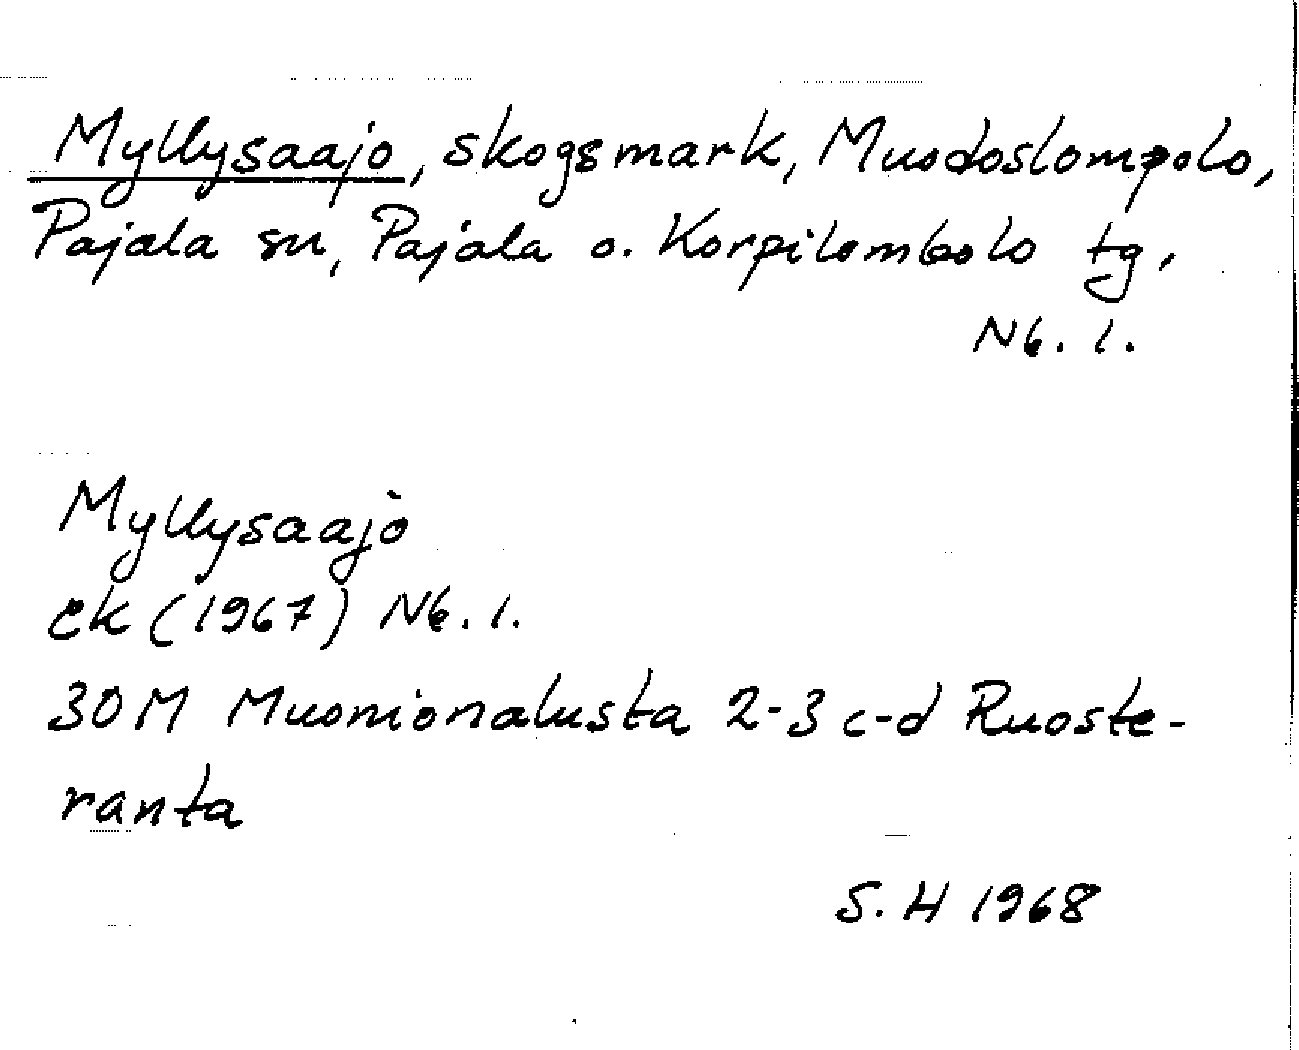 Myllysaajo, skogsmark, Muodoslompolo,
Pajala sn, Pajala o. Korpilombolo tg,
Nb. l.
Myllysaajo
ek (1967) Nb. l.
30M Muonionalusta 2-3 c-d Ruoste-
ranta
S. H 1968